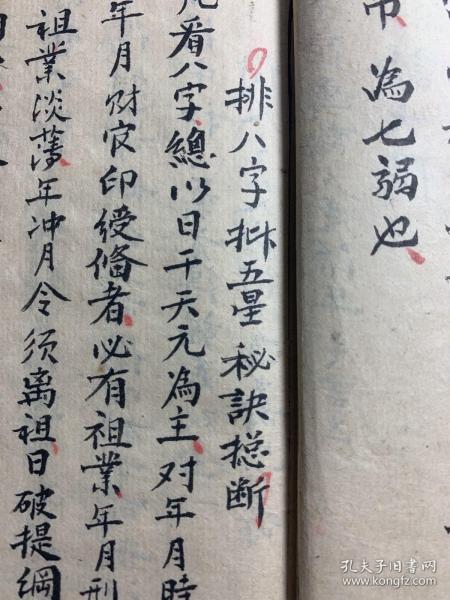 為七弱也
排八字批五星秘訣摠断
凡看八字總以日干天元為主对年月時
年月財官印綬俻者必有祖業年月刑
祖業淡薄年冲月令须离祖日破提綱
孔夫子旧书网
www.kongfz.com